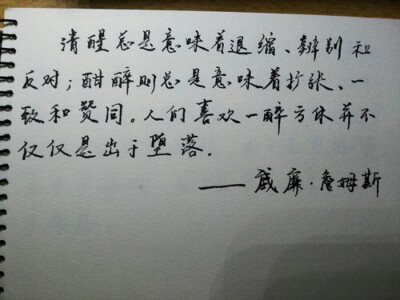 清醒总是意味着退缩、辨别和
反对；酣醉则总是意味着扩张、一
致和赞同。人们喜欢一醉方休并不
仅仅是出于堕落.
——威廉·詹姆斯